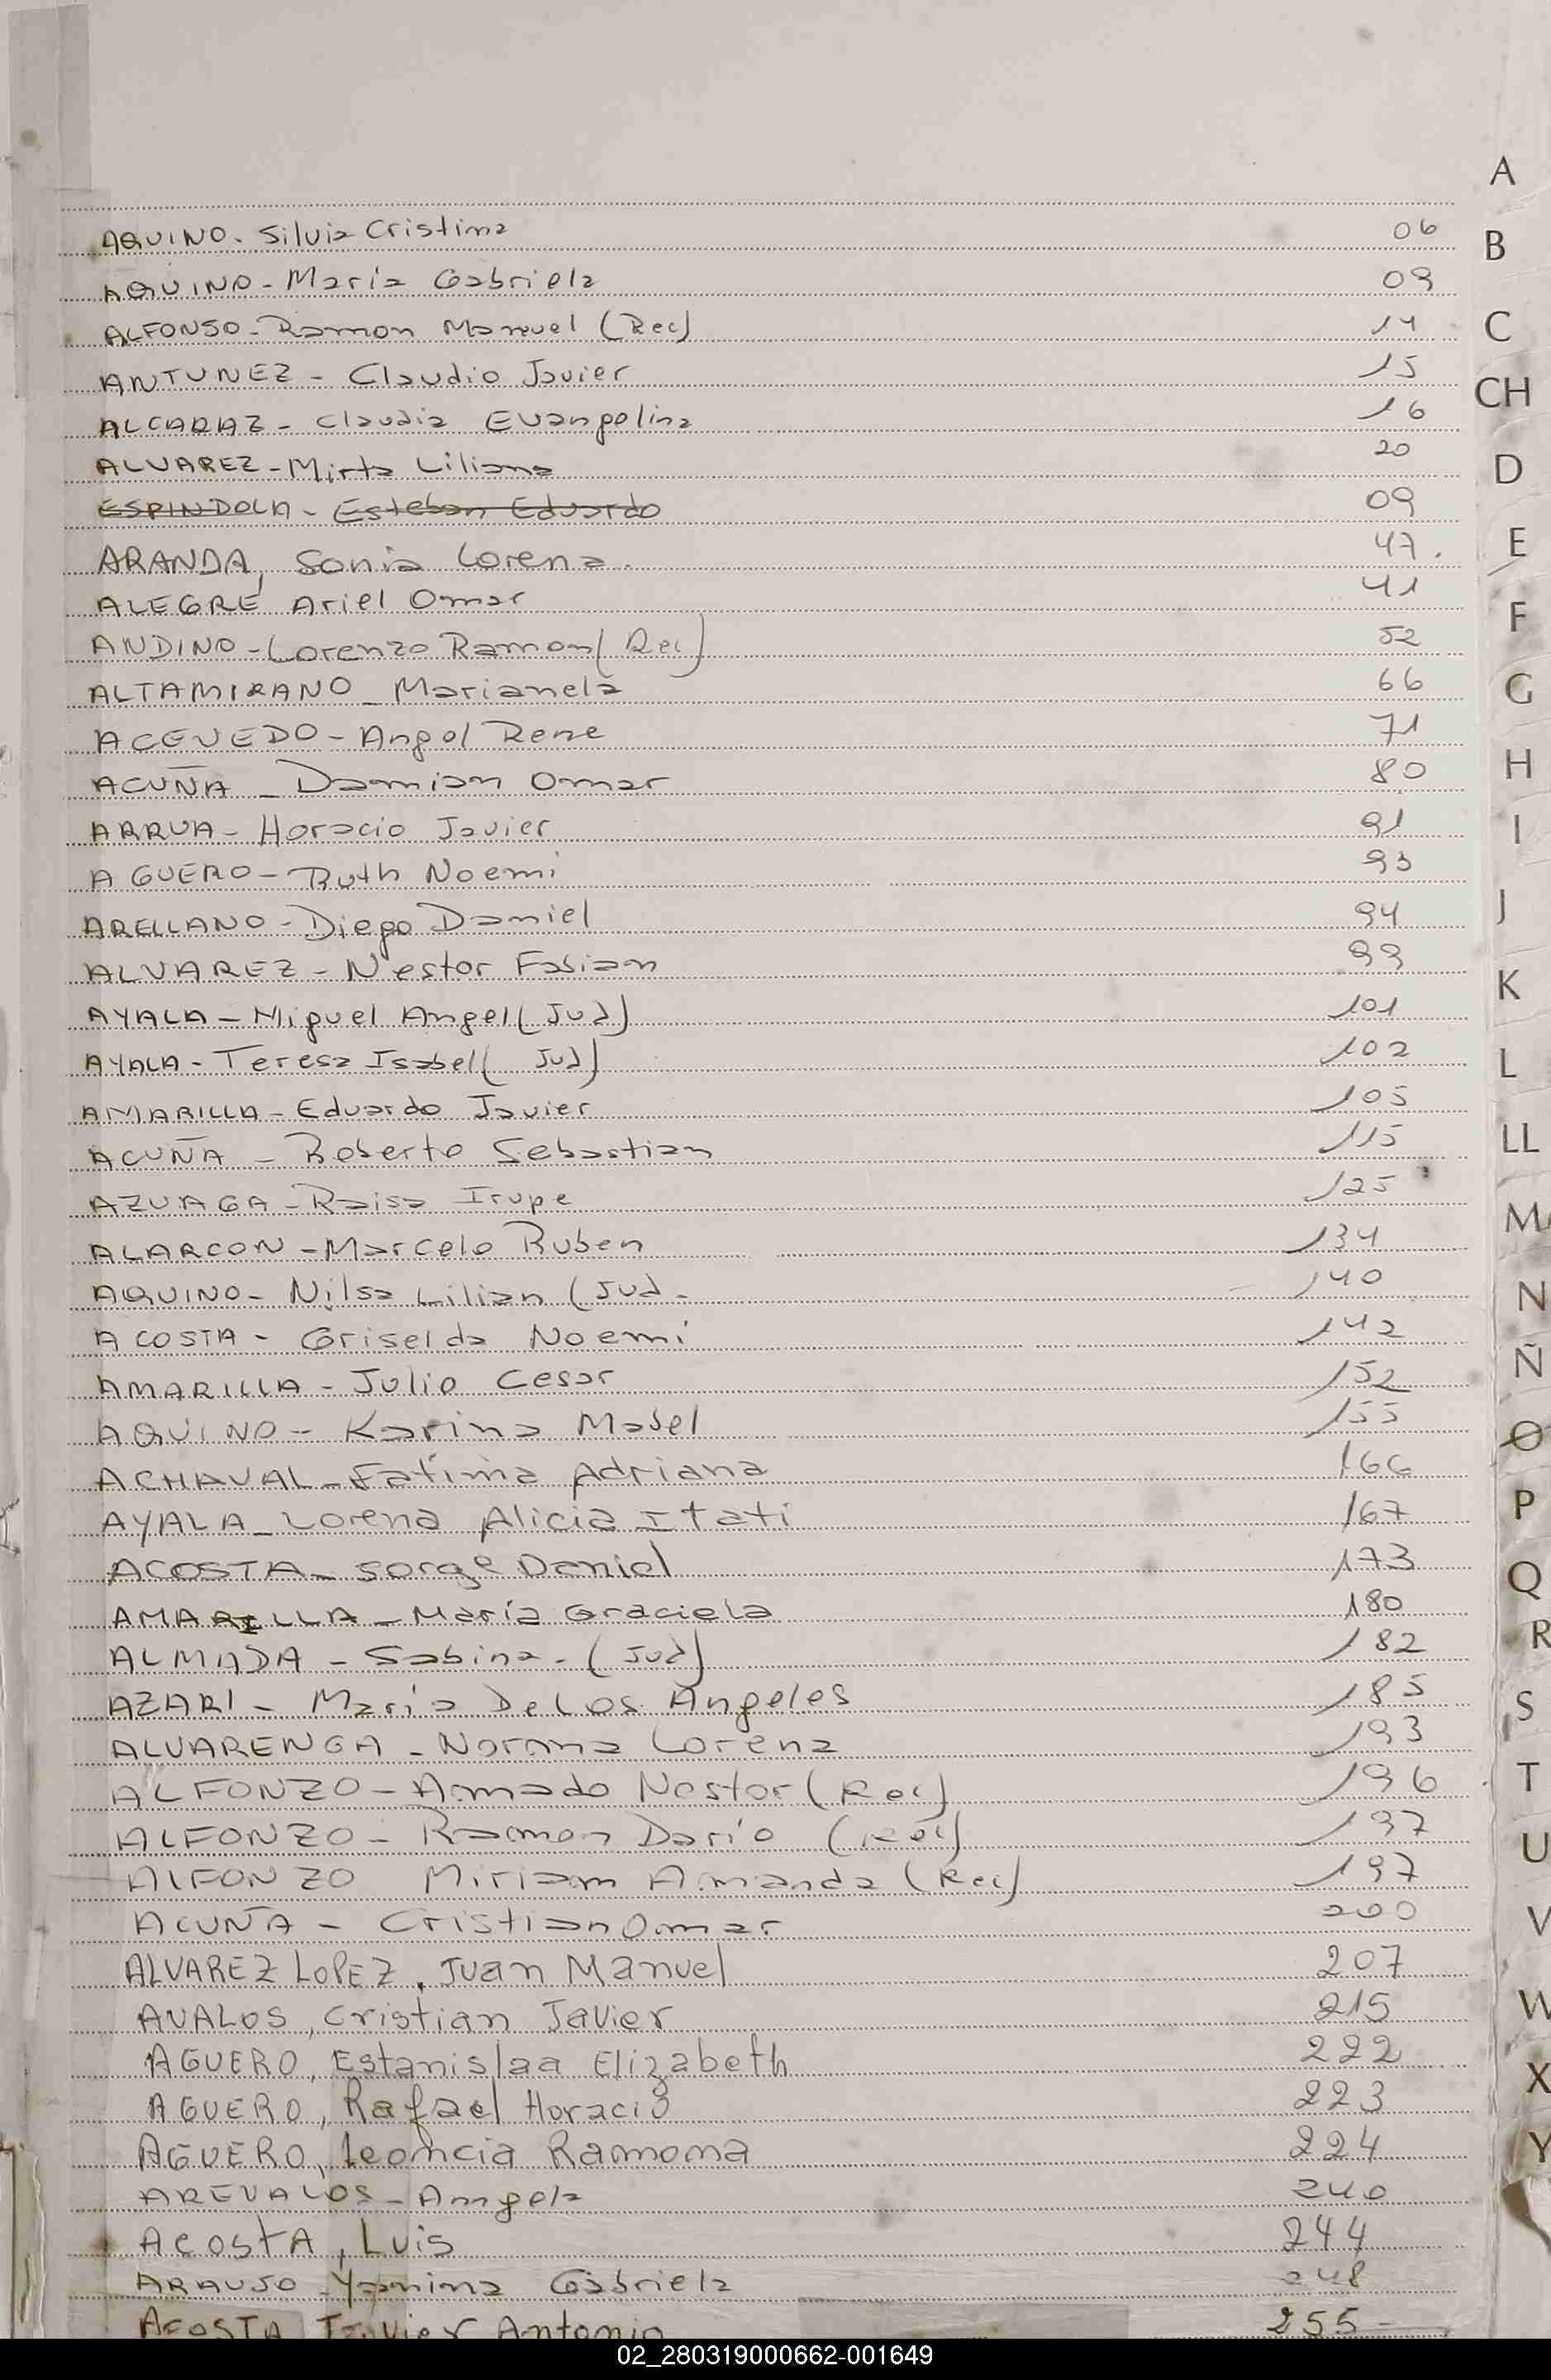 AQUINO - Silvia Cristina 06
AQUINO - Maria Gabriela 09
ALFONSO - Ramon Manuel (Rec) 14
ANTUNEZ - Claudio Javier 15
ALCARAZ - Claudia Evangelina 16
ALVAREZ - Mirta Liliana 20
ESPINDOLA - Esteban Eduardo 09
ARANDA, Sonia Lorena. 47.
ALEGRE Ariel Omar 41
ANDINO - Lorenzo Ramon (Rec) 52
ALTAMIRANO - Marianela 66
ACEVEDO - Angel Rene 71
ACUÑA - Damian Omar 80
ARRUA - Horacio Javier 91
AGUERO - Ruth Noemi 93
ARELLANO - Diego Daniel 94
ALVAREZ - Nestor Fabian 99
AYALA - Miguel Angel (Jud) 101
AYALA - Teresa Isabel (Jud) 102
AMARILLA - Eduardo Javier 105
ACUÑA - Roberto Sebastian 115
AZUAGA - Raisa Irupe 125
ALARCON - Marcelo Ruben 134
AQUINO - Nilsa Lilian (Jud - 140
ACOSTA - Griselda Noemi 142
AMARILLA - Julio Cesar 152
AQUINO - Karina Mabel 155
ACHAVAL - Fatima Adriana 166
AYALA - Lorena Alicia Itati 167
ACOSTA - Jorge Daniel 173
AMARILLA - María Graciela 180
ALMADA - Sabina - (Jud) 182
AZARI - Maria De Los Angeles 185
ALVARENGA - Norma Lorena 193
ALFONZO - Amado Nestor (Rec) 196
ALFONZO - Ramon Dario (Rec) 197
ALFONZO Miriam Amanda (Rec) 197
ACUÑA - Cristian Omar 200
ALVAREZ LOPEZ, Juan Manuel 207
AVALOS, Cristian Javier 215
AGUERO, Estanislaa Elizabeth 222
AGUERO, Rafael Horacio 223
AGUERO, Leoncia Ramona 224
AREVALOS - Angela 240
ACOSTA, Luis 244
ARAUJO - Yanina Gabriela 248
ACOSTA Javier Antonio 255
A
B
C
CH
D
E
F
G
H
I
J
K
L
LL
M
N
Ñ
O
P
Q
R
S
T
U
V
W
X
Y
02_280319000662-001649